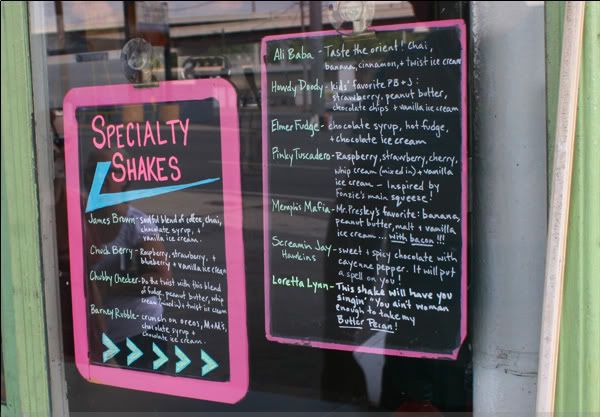 SPECIALTY
SHAKES
James Brown - soulful blend of coffee, chai,
chocolate syrup, +
vanilla ice cream.
Chuck Berry - Raspberry, strawberry, +
blueberry + vanilla ice cream
Chubby Checker - Do the twist with this blend
of fudge, peanut butter, whip
cream (mixed in) + twist ice cream
Barney Rubble - crunch on oreos, M+M's,
chocolate syrup +
chocolate ice cream.
Ali Baba - Taste the orient! Chai,
banana, cinnamon, + twist ice cream
Howdy Doody - kids' favorite PB + J:
strawberry, peanut butter,
chocolate chips + vanilla ice cream
Elmer Fudge - chocolate syrup, hot fudge,
+ chocolate ice cream
Pinky Tuscadero - Raspberry, strawberry, cherry,
whip cream (mixed in) + vanilla
ice cream - Inspired by
Fonzie's main squeeze!
Memphis Mafia - Mr. Presley's favorite: banana,
peanut butter, malt + vanilla
ice cream ... with bacon !!!
Screamin Jay - sweet + spicy chocolate with
Hawkins cayenne pepper. It will put
a spell on you!
Loretta Lynn - This shake will have you
singin' "You ain't woman
enough to take my
Butter Pecan!